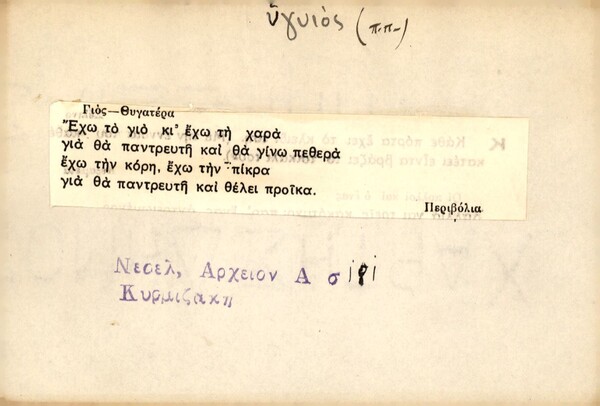 ὑγυιός (π.π-)
Γιὸς—Θυγατέρα
Ἔχω τὸ γιὸ κι' ἔχω τὴ χαρὰ
γιὰ θὰ παντρευτῆ καὶ θὰ γίνω πεθερὰ
ἔχω τὴν κόρη, ἔχω τὴν πίκρα
γιὰ θὰ παντρευτῆ καὶ θέλει προῖκα.
Περιβόλια
Νεοελ, Αρχειον Α σ
Κυρμιζακη